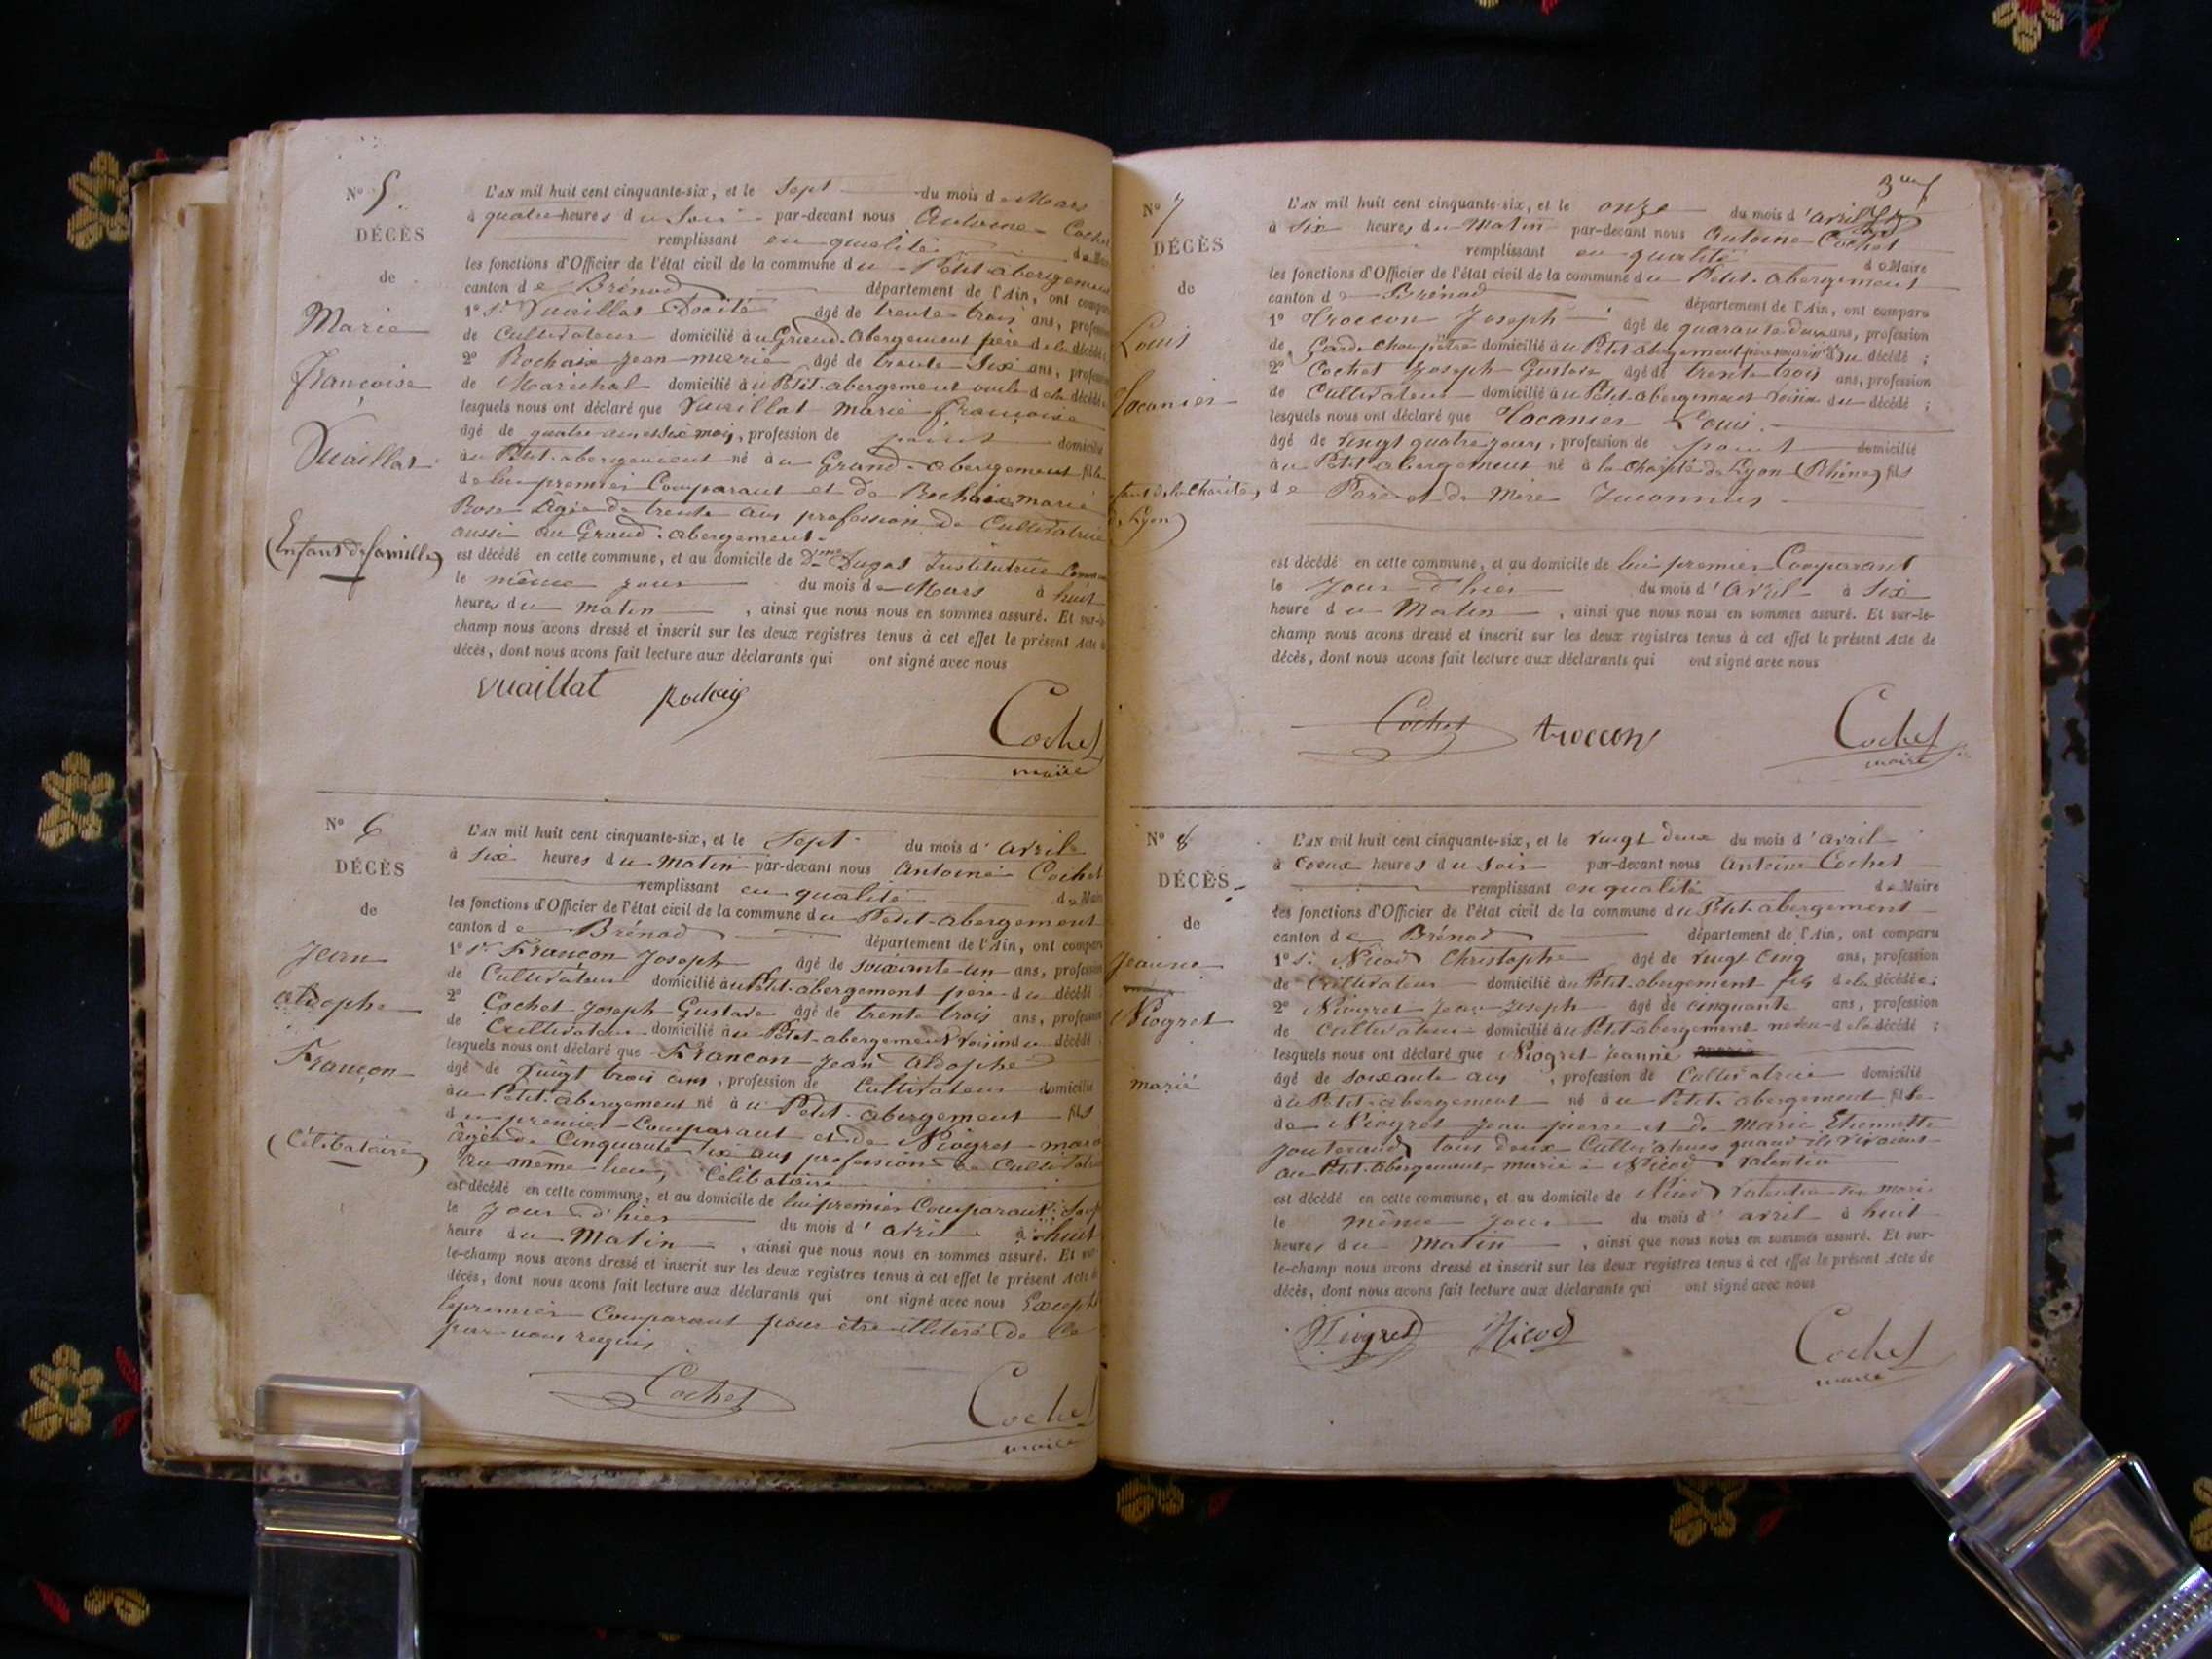 N° 5.
DÉCÈS
de
Marie
Françoise
Vuaillat
(Enfant de famille)
L'AN mil huit cent cinquante-six, et le sept du mois de Mars
à quatre heures du soir par-devant nous Antoine Cochet
remplissant en qualité de Maire
les fonctions d'Officier de l'état civil de la commune du Petit-abergement
canton de Brénod département de l'Ain, ont comparu
1° Sr Vuaillat âgé de trente trois ans, profession
de Cultivateur domicilié au Grand-Abergement père de la décédée
2° Rochaix Jean-marie âgé de trente-six ans, profession
de Maréchal domicilié au Petit-abergement oncle de la décédée
lesquels nous ont déclaré que Vuaillat Marie françoise
âgé de quatre ans et six mois, profession de point domicilié
au Petit-abergement né au Grand-abergement fille
de lui premier Comparant et de Rochaix marie
Rose âgée de trente ans profession de Cultivatrice
aussi au Grand-abergement.
est décédé en cette commune, et au domicile de Dme Dugas Institutrice
le même jour du mois de Mars à huit
heures du matin, ainsi que nous nous en sommes assuré. Et sur-le-
champ nous avons dressé et inscrit sur les deux registres tenus à cet effet le présent Acte de
décès, dont nous avons fait lecture aux déclarants qui ont signé avec nous
Vuaillat Rochaix
Cochet
maire
N° 6
DÉCÈS
de
Jean
aldophe
Françon
(Célibataire)
L'AN mil huit cent cinquante-six, et le sept du mois d'avril
à six heures du matin par-devant nous Antoine Cochet
remplissant en qualité de Maire
les fonctions d'Officier de l'état civil de la commune du Petit-abergement
canton de Brénod département de l'Ain, ont comparu
1° Sr Françon Joseph âgé de soixante-un ans, profession
de Cultivateur domicilié au Petit-abergement père du décédé
2° Cochet Joseph Gustave âgé de trente trois ans, profession
de Cultivateur domicilié au Petit-abergement voisin du décédé
lesquels nous ont déclaré que Françon Jean aldophe
âgé de vingt trois ans, profession de Cultivateur domicilié
au Petit-abergement né au Petit-abergement fils
du premier Comparant et de Niogret marie
âgée de Cinquante six ans profession de Cultivatrice
au même lieu, Célibataire
est décédé en cette commune, et au domicile de lui premier Comparant
le jour d'hier du mois d'avril à huit
heure du Matin, ainsi que nous nous en sommes assuré. Et sur-
le-champ nous avons dressé et inscrit sur les deux registres tenus à cet effet le présent Acte de
décès, dont nous avons fait lecture aux déclarants qui ont signé avec nous Excepté
le premier Comparant pour être illitéré de ce
par nous requis
Cochet
Cochet
maire
N° 7
DÉCÈS
de
Louis
Tocanier
de la Charité
Lyon)
L'AN mil huit cent cinquante-six, et le onze du mois d'avril
à six heures du Matin par-devant nous Antoine Cochet
remplissant en qualité de Maire
les fonctions d'Officier de l'état civil de la commune du Petit-abergement
canton de Brénod département de l'Ain, ont comparu
1° Troccon Joseph âgé de quarante deux ans, profession
de Garde Champêtre domicilié au Petit abergement père nourricier du décédé ;
2° Cochet Joseph Gustave âgé de trente trois ans, profession
de Cultivateur domicilié au Petit-abergement voisin du décédé ;
lesquels nous ont déclaré que Tocanier Louis.
âgé de vingt quatre jours, profession de point domicilié
au Petit abergement né à la Charité de Lyon (Rhône) fils
de Père et de Mère Inconnus
est décédé en cette commune, et au domicile de lui premier Comparant
le jour d'hier du mois d'avril à six
heure du Matin, ainsi que nous nous en sommes assuré. Et sur-le-
champ nous avons dressé et inscrit sur les deux registres tenus à cet effet le présent Acte de
décès, dont nous avons fait lecture aux déclarants qui ont signé avec nous
Cochet troccon
Cochet
maire
N° 8
DÉCÈS
de
Jeanne
Niogret
marié
L'AN mil huit cent cinquante-six, et le vingt deux du mois d'avril
à heures du soir par-devant nous Antoine Cochet
remplissant en qualité de Maire
les fonctions d'Officier de l'état civil de la commune du Petit-abergement
canton de Brénod département de l'Ain, ont comparu
1° Sr Nicod Christophe âgé de vingt cinq ans, profession
de Cultivateur domicilié au Petit-abergement fils de la décédée ;
2° Niogret Jean-Joseph âgé de cinquante ans, profession
de Cultivateur domicilié au Petit-abergement neveu de la décédé ;
lesquels nous ont déclaré que Niogret Jeanne
âgé de soixante ans, profession de Cultivatrice domicilié
au Petit-abergement né au Petit-abergement fille
de Niogret Jean pierre et de Marie Etiennette
Jouterand tous deux Cultivateurs quand ils vivaient
au Petit-abergement, marié à Nicod Valentin
est décédé en cette commune, et au domicile de Nicod Valentin son mari
le même jour du mois d'avril à huit
heures du matin, ainsi que nous nous en sommes assuré. Et sur-
le-champ nous avons dressé et inscrit sur les deux registres tenus à cet effet le présent Acte de
décès, dont nous avons fait lecture aux déclarants qui ont signé avec nous
Niogret Nicod
Cochet
maire